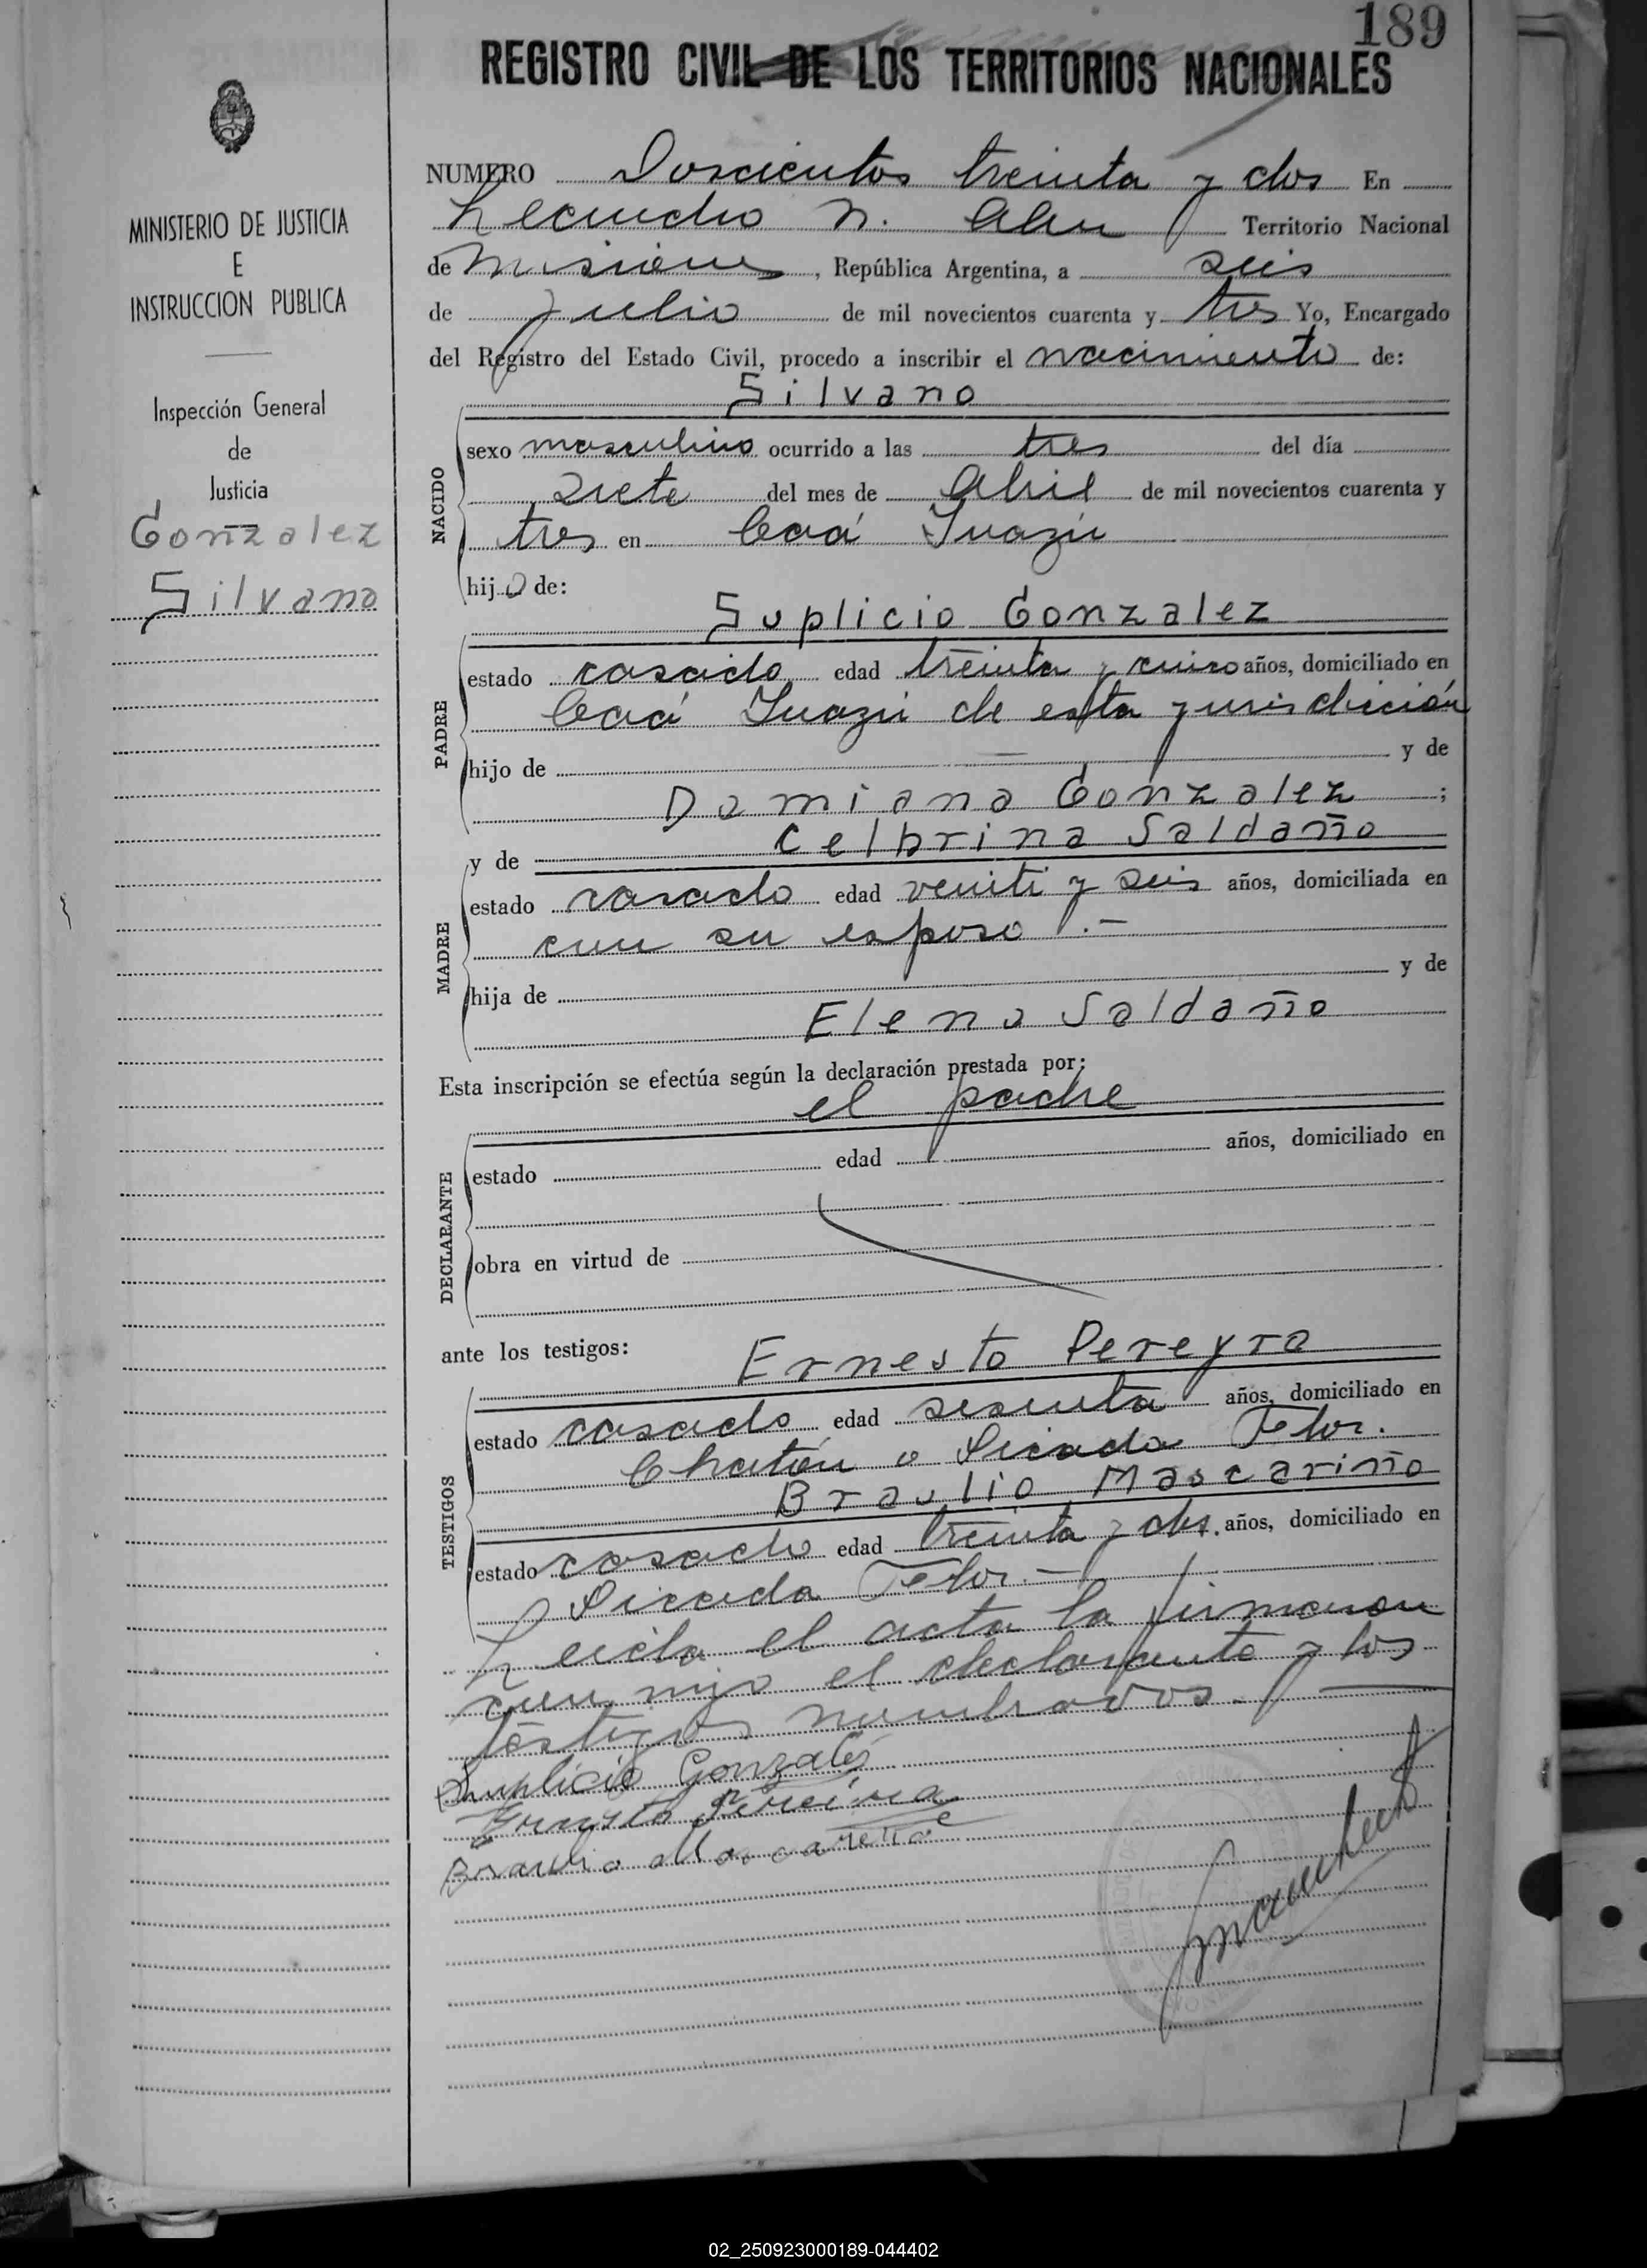 189
REGISTRO CIVIL DE LOS TERRITORIOS NACIONALES
MINISTERIO DE JUSTICIA
E
INSTRUCCION PUBLICA
Inspección General
de
Justicia
Gonzalez
Silvano
NUMERO Doscientos treinta y dos En
Leandro N. Alem Territorio Nacional
de Misiones, República Argentina, a seis
de Julio de mil novecientos cuarenta y tres Yo, Encargado
del Registro del Estado Civil, procedo a inscribir el nacimiento de:
Silvano
NACIDO
sexo masculino ocurrido a las tres del día
siete del mes de Abril de mil novecientos cuarenta y
tres en Caá Guazú
hijo de:
Suplicio Gonzalez
PADRE
estado casado edad treinta y cinco años, domiciliado en
Caá Guazú de esta jurisdicción
hijo de — y de
Damiana Gonzalez ;
y de Celbrina Saldaño
MADRE
estado casado edad veinti y seis años, domiciliada en
con su esposo .-
hija de y de
Elena Saldaño
Esta inscripción se efectúa según la declaración prestada por:
el padre
DECLARANTE
estado edad años, domiciliado en
obra en virtud de
ante los testigos:
Ernesto Pereyra
TESTIGOS
estado casado edad sesenta años, domiciliado en
o Picada Flor.
Braulio Mascariño
estado casado edad treinta y dos. años, domiciliado en
Picada Flor.-
Leida el acta la firmaron
con migo el declarante y los
testigos nombrados.-
Suplicio Gonzales
Ernesto Pereira
Braulio
02_250923000189-044402